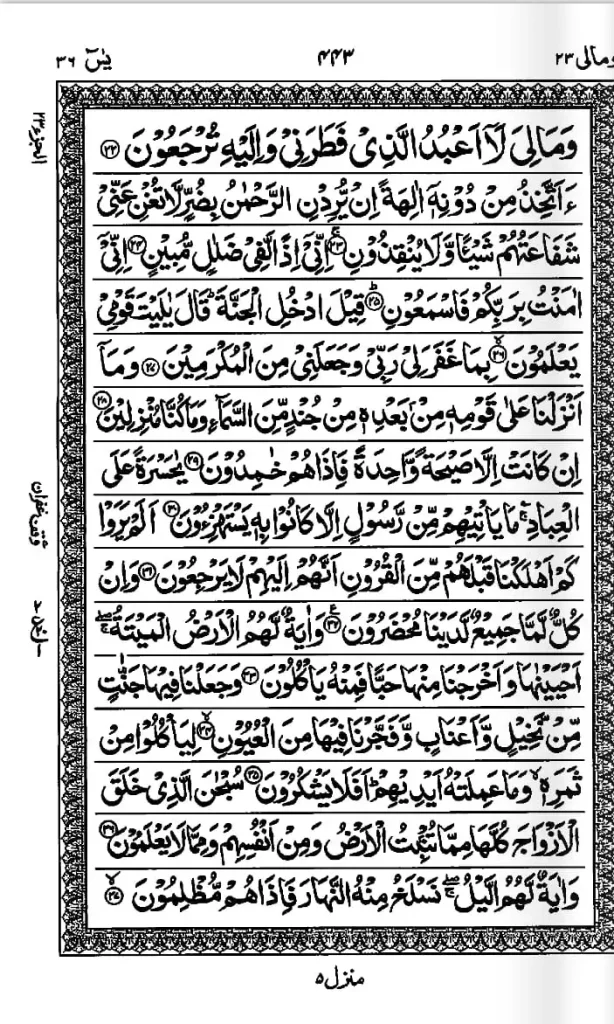 ومالى ٢٣
٤٤٣
يٰسٓ ٣٦
وَمَالِيَ لَآ اَعْبُدُ الَّذِيْ فَطَرَنِيْ وَاِلَيْهِ تُرْجَعُوْنَ ۝٢٢
ءَاَتَّخِذُ مِنْ دُوْنِهٖٓ اٰلِهَةً اِنْ يُّرِدْنِ الرَّحْمٰنُ بِضُرٍّ لَّا تُغْنِ عَنِّيْ
شَفَاعَتُهُمْ شَيْـًٔا وَّلَا يُنْقِذُوْنِ ۝٢٣ اِنِّيْٓ اِذًا لَّفِيْ ضَلٰلٍ مُّبِيْنٍ ۝٢٤ اِنِّيْٓ
اٰمَنْتُ بِرَبِّكُمْ فَاسْمَعُوْنِ ۝٢٥ قِيْلَ ادْخُلِ الْجَنَّةَ ؕ قَالَ يٰلَيْتَ قَوْمِيْ
يَعْلَمُوْنَ ۝٢٦ بِمَا غَفَرَ لِيْ رَبِّيْ وَجَعَلَنِيْ مِنَ الْمُكْرَمِيْنَ ۝٢٧ وَمَآ
اَنْزَلْنَا عَلٰى قَوْمِهٖ مِنْۢ بَعْدِهٖ مِنْ جُنْدٍ مِّنَ السَّمَآءِ وَمَا كُنَّا مُنْزِلِيْنَ ۝٢٨
اِنْ كَانَتْ اِلَّا صَيْحَةً وَّاحِدَةً فَاِذَا هُمْ خٰمِدُوْنَ ۝٢٩ يٰحَسْرَةً عَلَى
الْعِبَادِ ۚؔ مَا يَاْتِيْهِمْ مِّنْ رَّسُوْلٍ اِلَّا كَانُوْا بِهٖ يَسْتَهْزِءُوْنَ ۝٣٠ اَلَمْ يَرَوْا
كَمْ اَهْلَكْنَا قَبْلَهُمْ مِّنَ الْقُرُوْنِ اَنَّهُمْ اِلَيْهِمْ لَا يَرْجِعُوْنَ ۝٣١ وَاِنْ
كُلٌّ لَّمَّا جَمِيْعٌ لَّدَيْنَا مُحْضَرُوْنَ ۝٣٢ وَاٰيَةٌ لَّهُمُ الْاَرْضُ الْمَيْتَةُ ۖۚ
اَحْيَيْنٰهَا وَاَخْرَجْنَا مِنْهَا حَبًّا فَمِنْهُ يَاْكُلُوْنَ ۝٣٣ وَجَعَلْنَا فِيْهَا جَنّٰتٍ
مِّنْ نَّخِيْلٍ وَّاَعْنَابٍ وَّفَجَّرْنَا فِيْهَا مِنَ الْعُيُوْنِ ۝٣٤ لِيَاْكُلُوْا مِنْ
ثَمَرِهٖ ۙ وَمَا عَمِلَتْهُ اَيْدِيْهِمْ ؕ اَفَلَا يَشْكُرُوْنَ ۝٣٥ سُبْحٰنَ الَّذِيْ خَلَقَ
الْاَزْوَاجَ كُلَّهَا مِمَّا تُنْۢبِتُ الْاَرْضُ وَمِنْ اَنْفُسِهِمْ وَمِمَّا لَا يَعْلَمُوْنَ ۝٣٦
وَاٰيَةٌ لَّهُمُ الَّيْلُ ۖۚ نَسْلَخُ مِنْهُ النَّهَارَ فَاِذَا هُمْ مُّظْلِمُوْنَ ۝٣٧
الجزء ٢٣
وقف غفران
منزل ٥